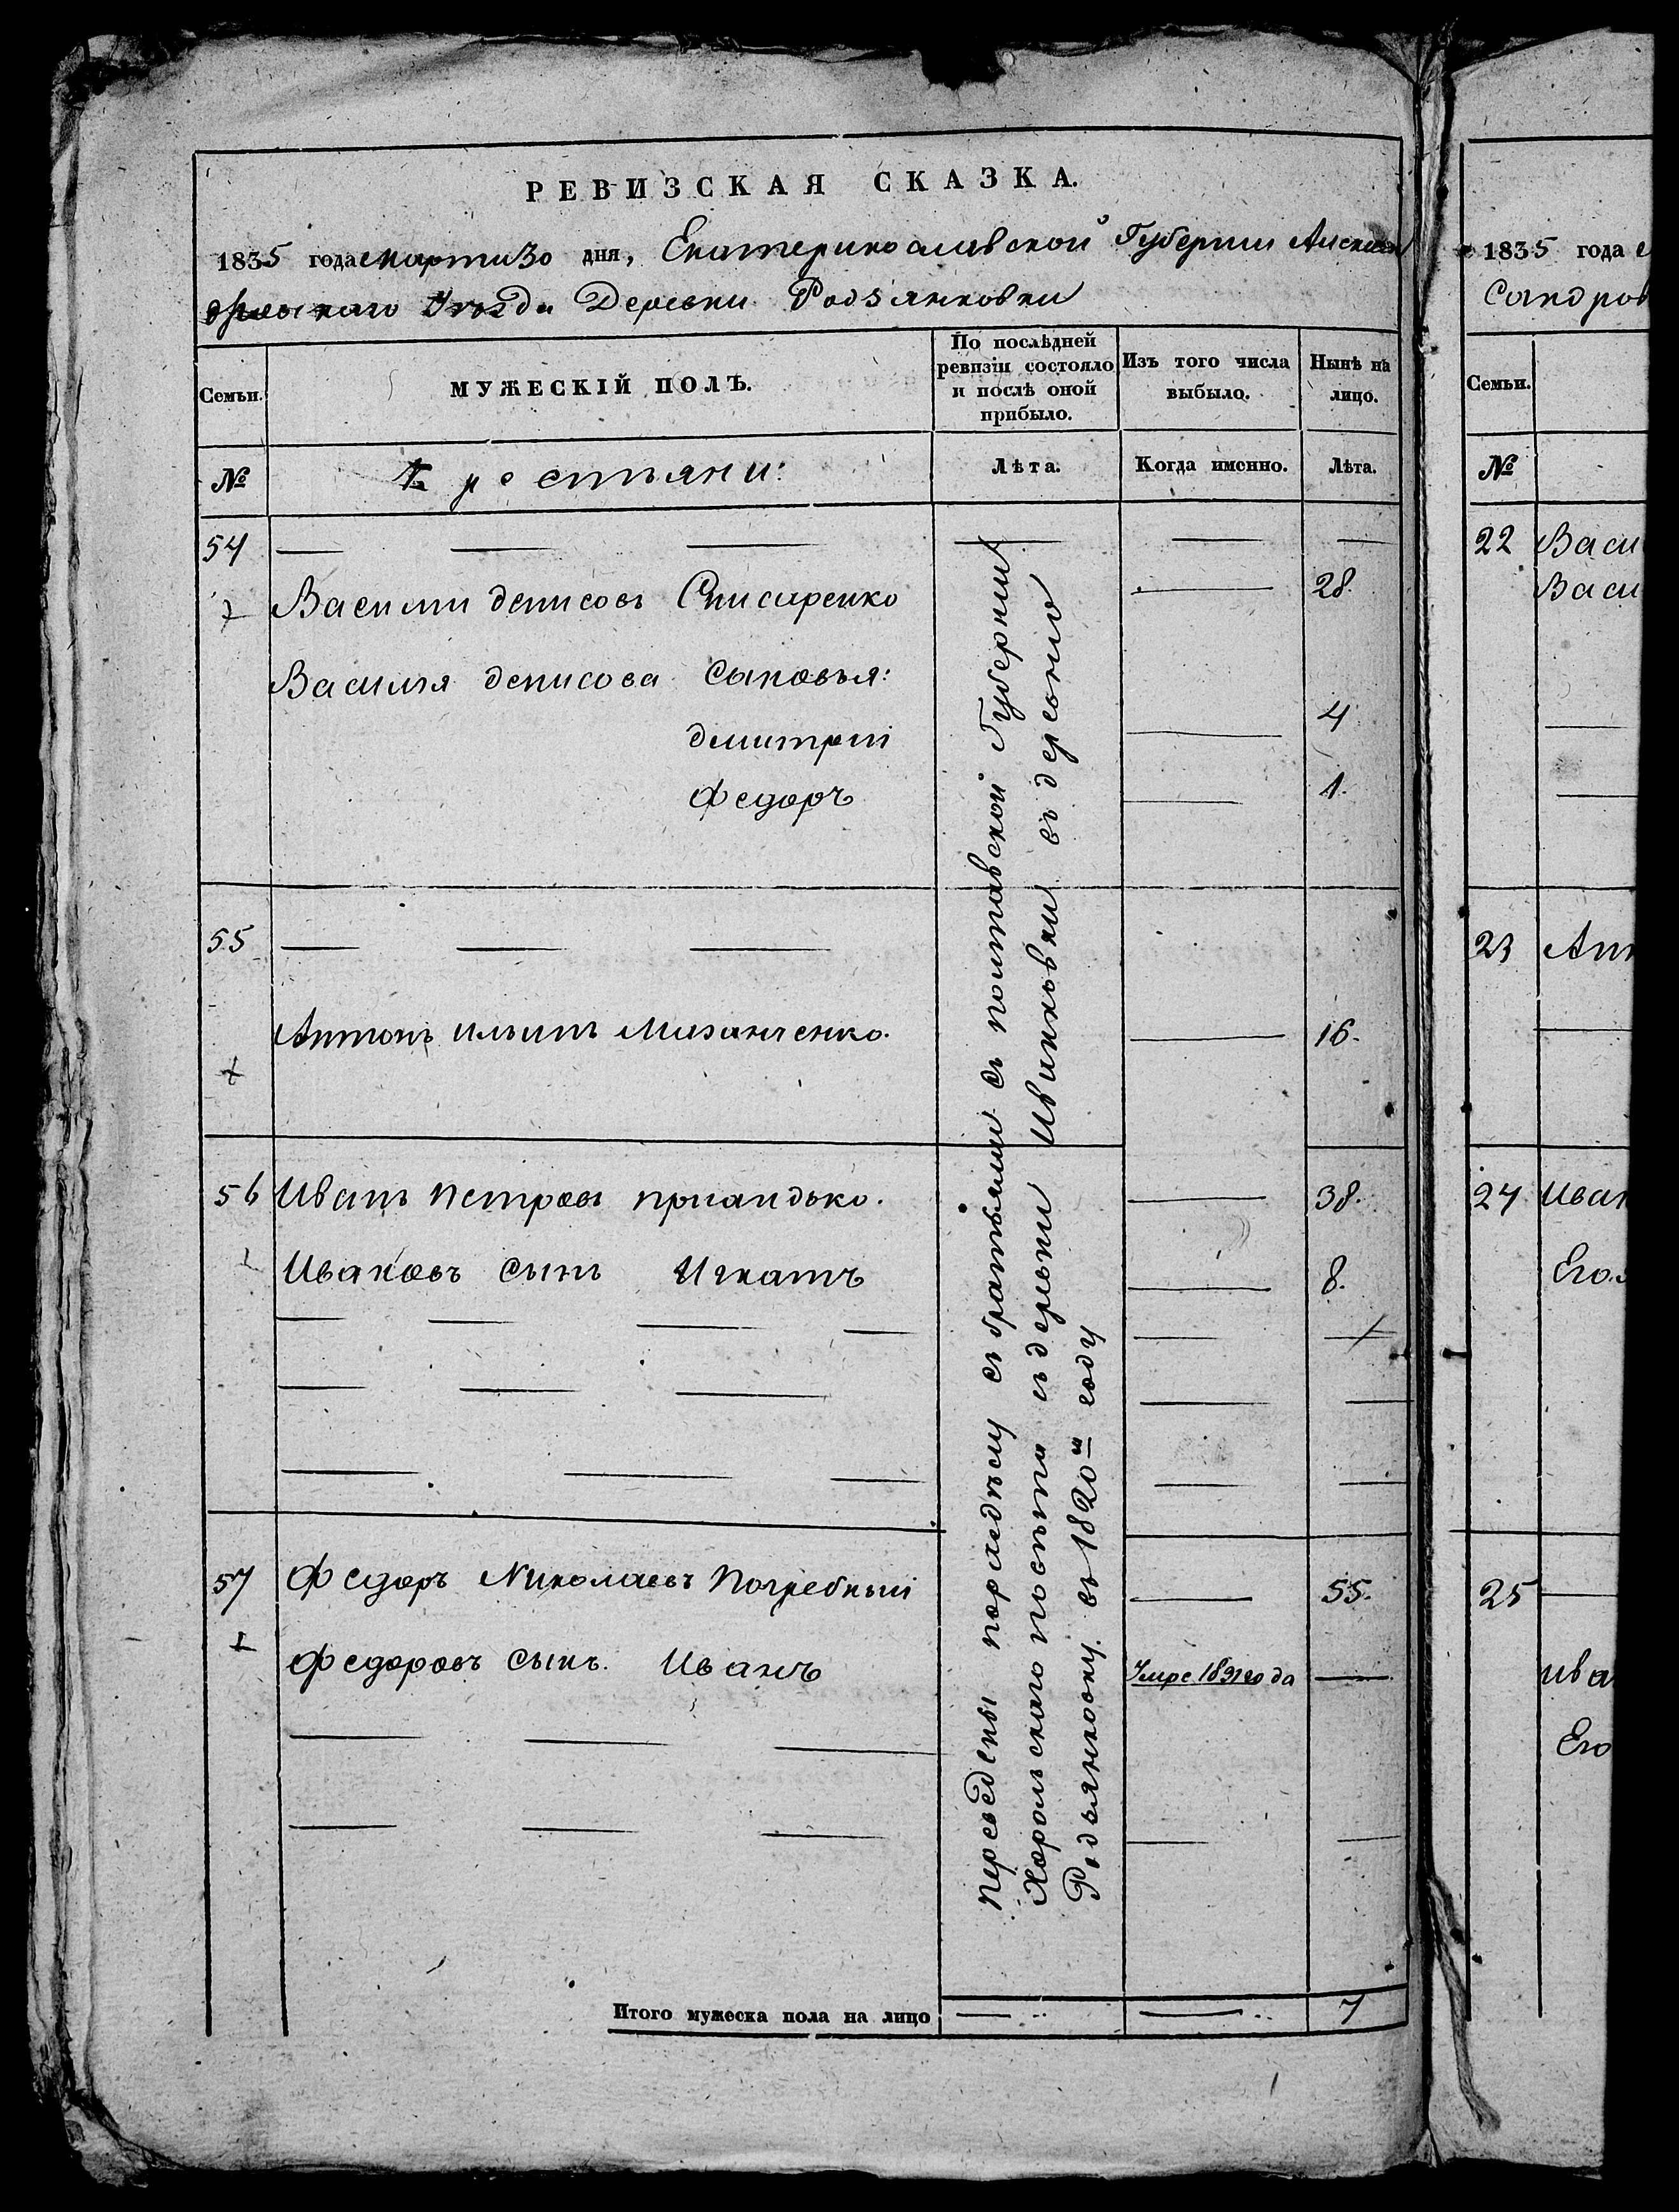 РЕВИЗСКАЯ СКАЗКА.
1835 года марта 30 дня, Екатеринославской Губернии Алексан
дровскаго Уѣзда Деревни Родзянковки
Семьи.
МУЖЕСКІЙ ПОЛЪ.
По послѣдней
ревизіи состояло
и послѣ оной
прибыло.
Изъ того числа
выбыло.
Нынѣ на
лицо.
№
Крестьяни:
Лѣта.
Когда именно.
Лѣта.
54
Василий денисовъ Слисаренко 28.
Василия денисова сыновья:
дмитрий 4
Федоръ 1.
55
Антонъ ильинъ 16.
56 Иванъ петровъ 38.
Ивановъ сынъ Игнатъ 8.
57 Федоръ Николаевъ Погребный 55.
Федоровъ сынъ Иванъ Умре года
Переведены помещикомъ съ полтавской Губернии
Хорольскаго повѣта съ деревни Ивинковки въ деревню
Родзянковку въ 1820м году
Итого мужеска пола на лицо 7
1835 года
Сандров
Семьи.
№
22 Васи
Васи
23 Ант
24 Иван
Его
25
ива
Его